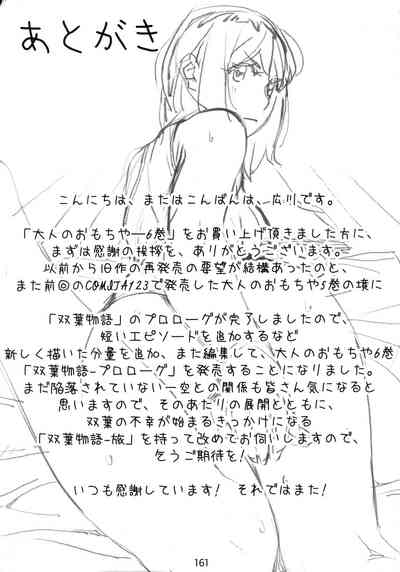 あとがき
こんにちは、またはこんばんは、広川です。
「大人のおもちゃ―6巻」をお買い上げ頂きました方に、
まずは感謝の挨拶を、ありがとうございます。
以前から旧作の再発売の要望が結構あったのと、
また前回のCOMITA123で発売した大人のおもちゃ5巻の境に
「双葉物語」のプロローグが完了しましたので、
短いエピソードを追加するなど
新しく描いた分量を追加、また編集して、大人のおもちゃ6巻
「双葉物語-プロローグ」を発売することになりました。
まだ陥落されていない一空との関係も皆さん気になると
思いますので、そのあたりの展開とともに、
双葉の不幸が始まるきっかけになる
「双葉物語-旅」を持って改めてお伺いしますので、
乞うご期待を!
いつも感謝しています! それではまた!
161